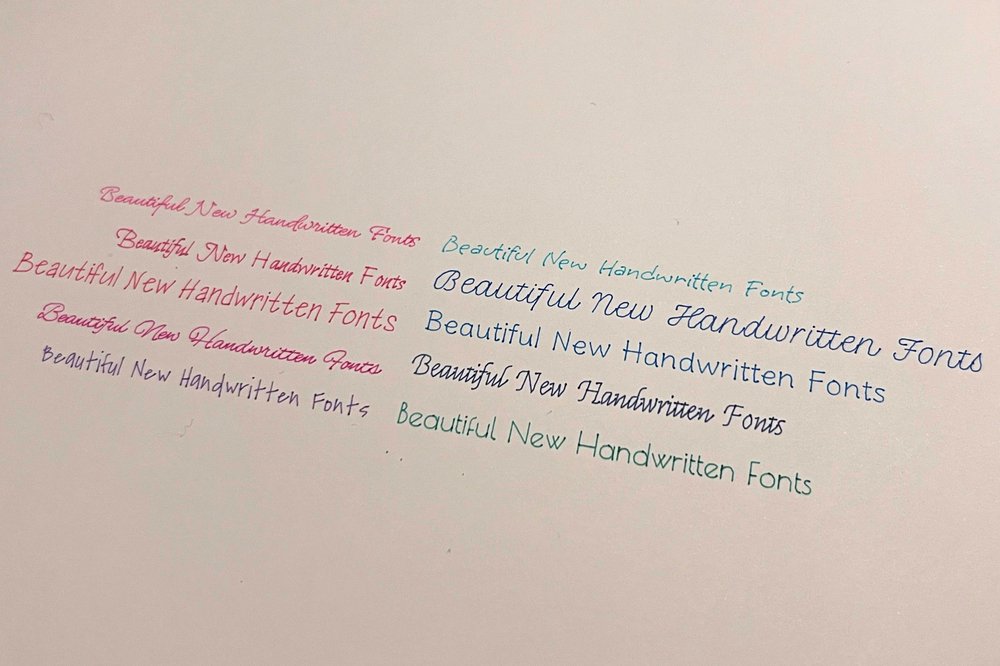 Beautiful New Handwritten Fonts
Beautiful New Handwritten Fonts
Beautiful New Handwritten Fonts
Beautiful New Handwritten Fonts
Beautiful New Handwritten Fonts
Beautiful New Handwritten Fonts
Beautiful New Handwritten Fonts
Beautiful New Handwritten Fonts
Beautiful New Handwritten Fonts
Beautiful New Handwritten Fonts